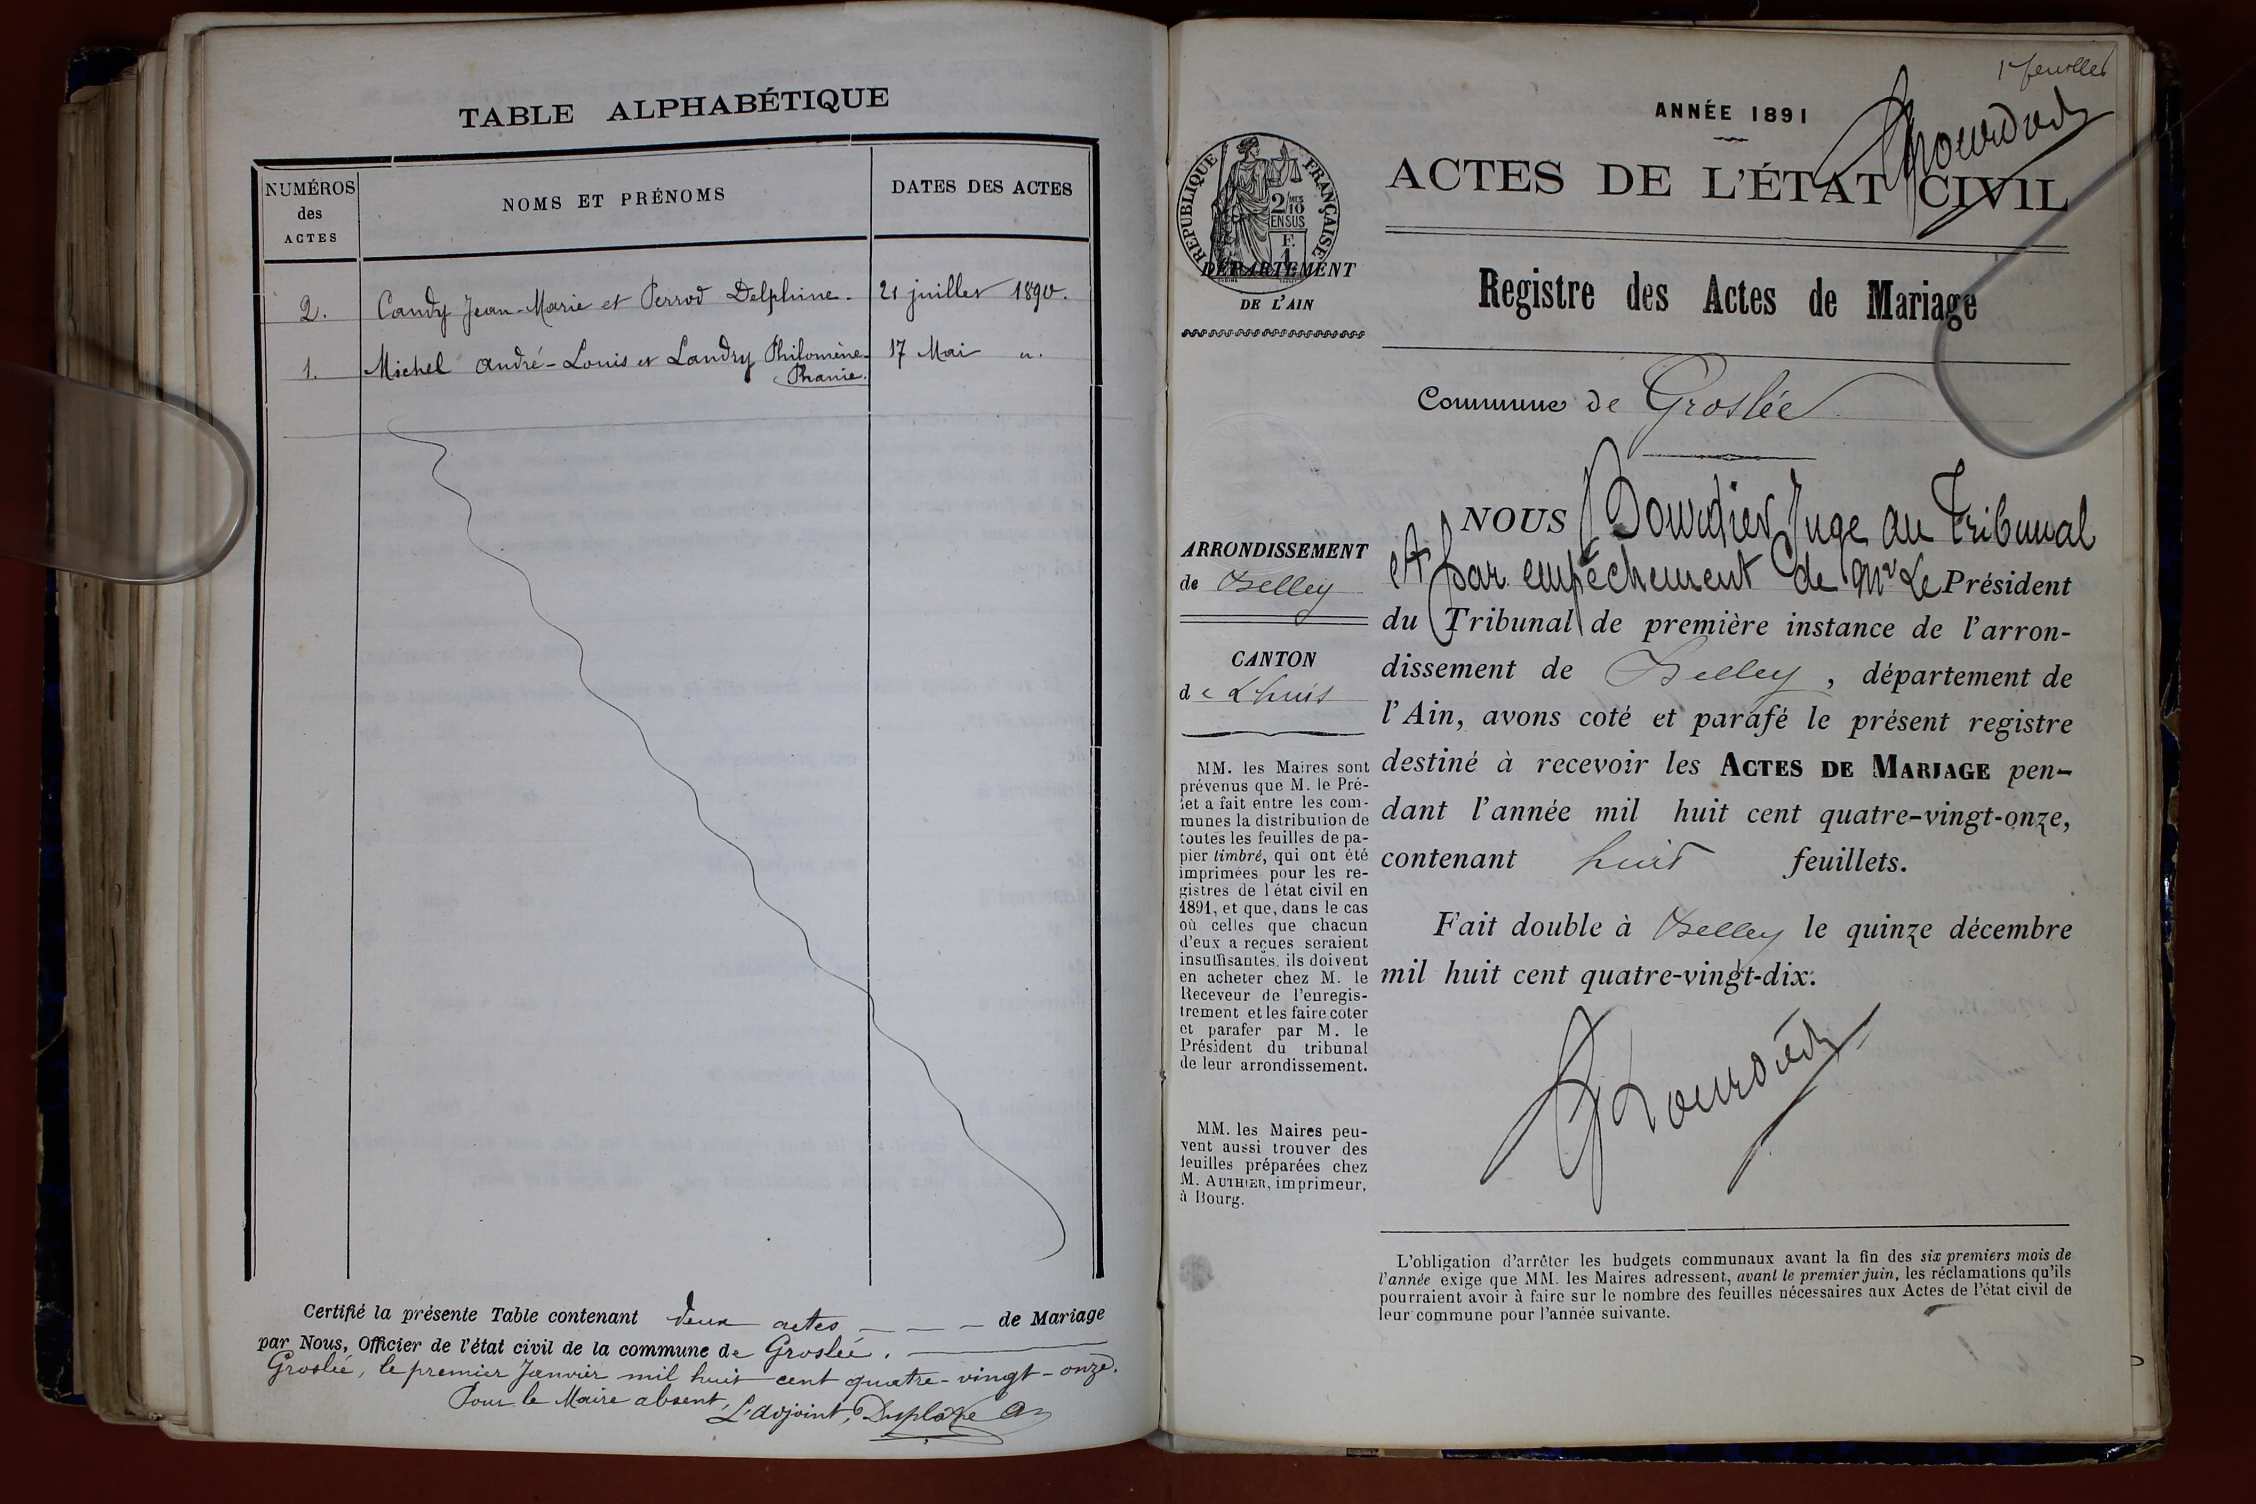 TABLE ALPHABÉTIQUE
NUMÉROS
des
ACTES
NOMS ET PRÉNOMS
DATES DES ACTES
2. Candy Jean-Marie et Perrod Delphine. 21 juillet 1890.
1. Michel André-Louis et Landry Philomène- 17 Mai
Phanie.
Certifié la présente Table contenant deux actes — — — de Mariage
par Nous, Officier de l'état civil de la commune de Groslée.
Groslée, le premier Janvier mil huit cent quatre-vingt-onze.
Pour le Maire absent,
L'adjoint,
1er feuillet
ANNÉE 1891
ACTES DE L'ÉTAT CIVIL
RÉPUBLIQUE FRANÇAISE
2/10
EN SUS
DÉPARTEMENT
DE L'AIN
Registre des Actes de Mariage
Commune de Groslée
ARRONDISSEMENT
de Belley
CANTON
de Lhuis
MM. les Maires sont
prévenus que M. le Pré-
fet a fait entre les com-
munes la distribution de
toutes les feuilles de pa-
pier timbré, qui ont été
imprimées pour les re-
gistres de l'état civil en
1891, et que, dans le cas
où celles que chacun
d'eux a reçues seraient
insuffisantes, ils doivent
en acheter chez M. le
Receveur de l'enregis-
trement et les faire coter
et parafer par M. le
Président du tribunal
de leur arrondissement.
MM. les Maires peu-
vent aussi trouver des
feuilles préparées chez
M. AUTHIER, imprimeur,
à Bourg.
NOUS Bourdier Juge au Tribunal
et par empêchement de Mr Le Président
du Tribunal de première instance de l'arron-
dissement de Belley, département de
l'Ain, avons coté et parafé le présent registre
destiné à recevoir les ACTES DE MARIAGE pen-
dant l'année mil huit cent quatre-vingt-onze,
contenant huit feuillets.
Fait double à Belley le quinze décembre
mil huit cent quatre-vingt-dix.
Bourdier
L'obligation d'arrêter les budgets communaux avant la fin des six premiers mois de
l'année exige que MM. les Maires adressent, avant le premier juin, les réclamations qu'ils
pourraient avoir à faire sur le nombre des feuilles nécessaires aux Actes de l'état civil de
leur commune pour l'année suivante.